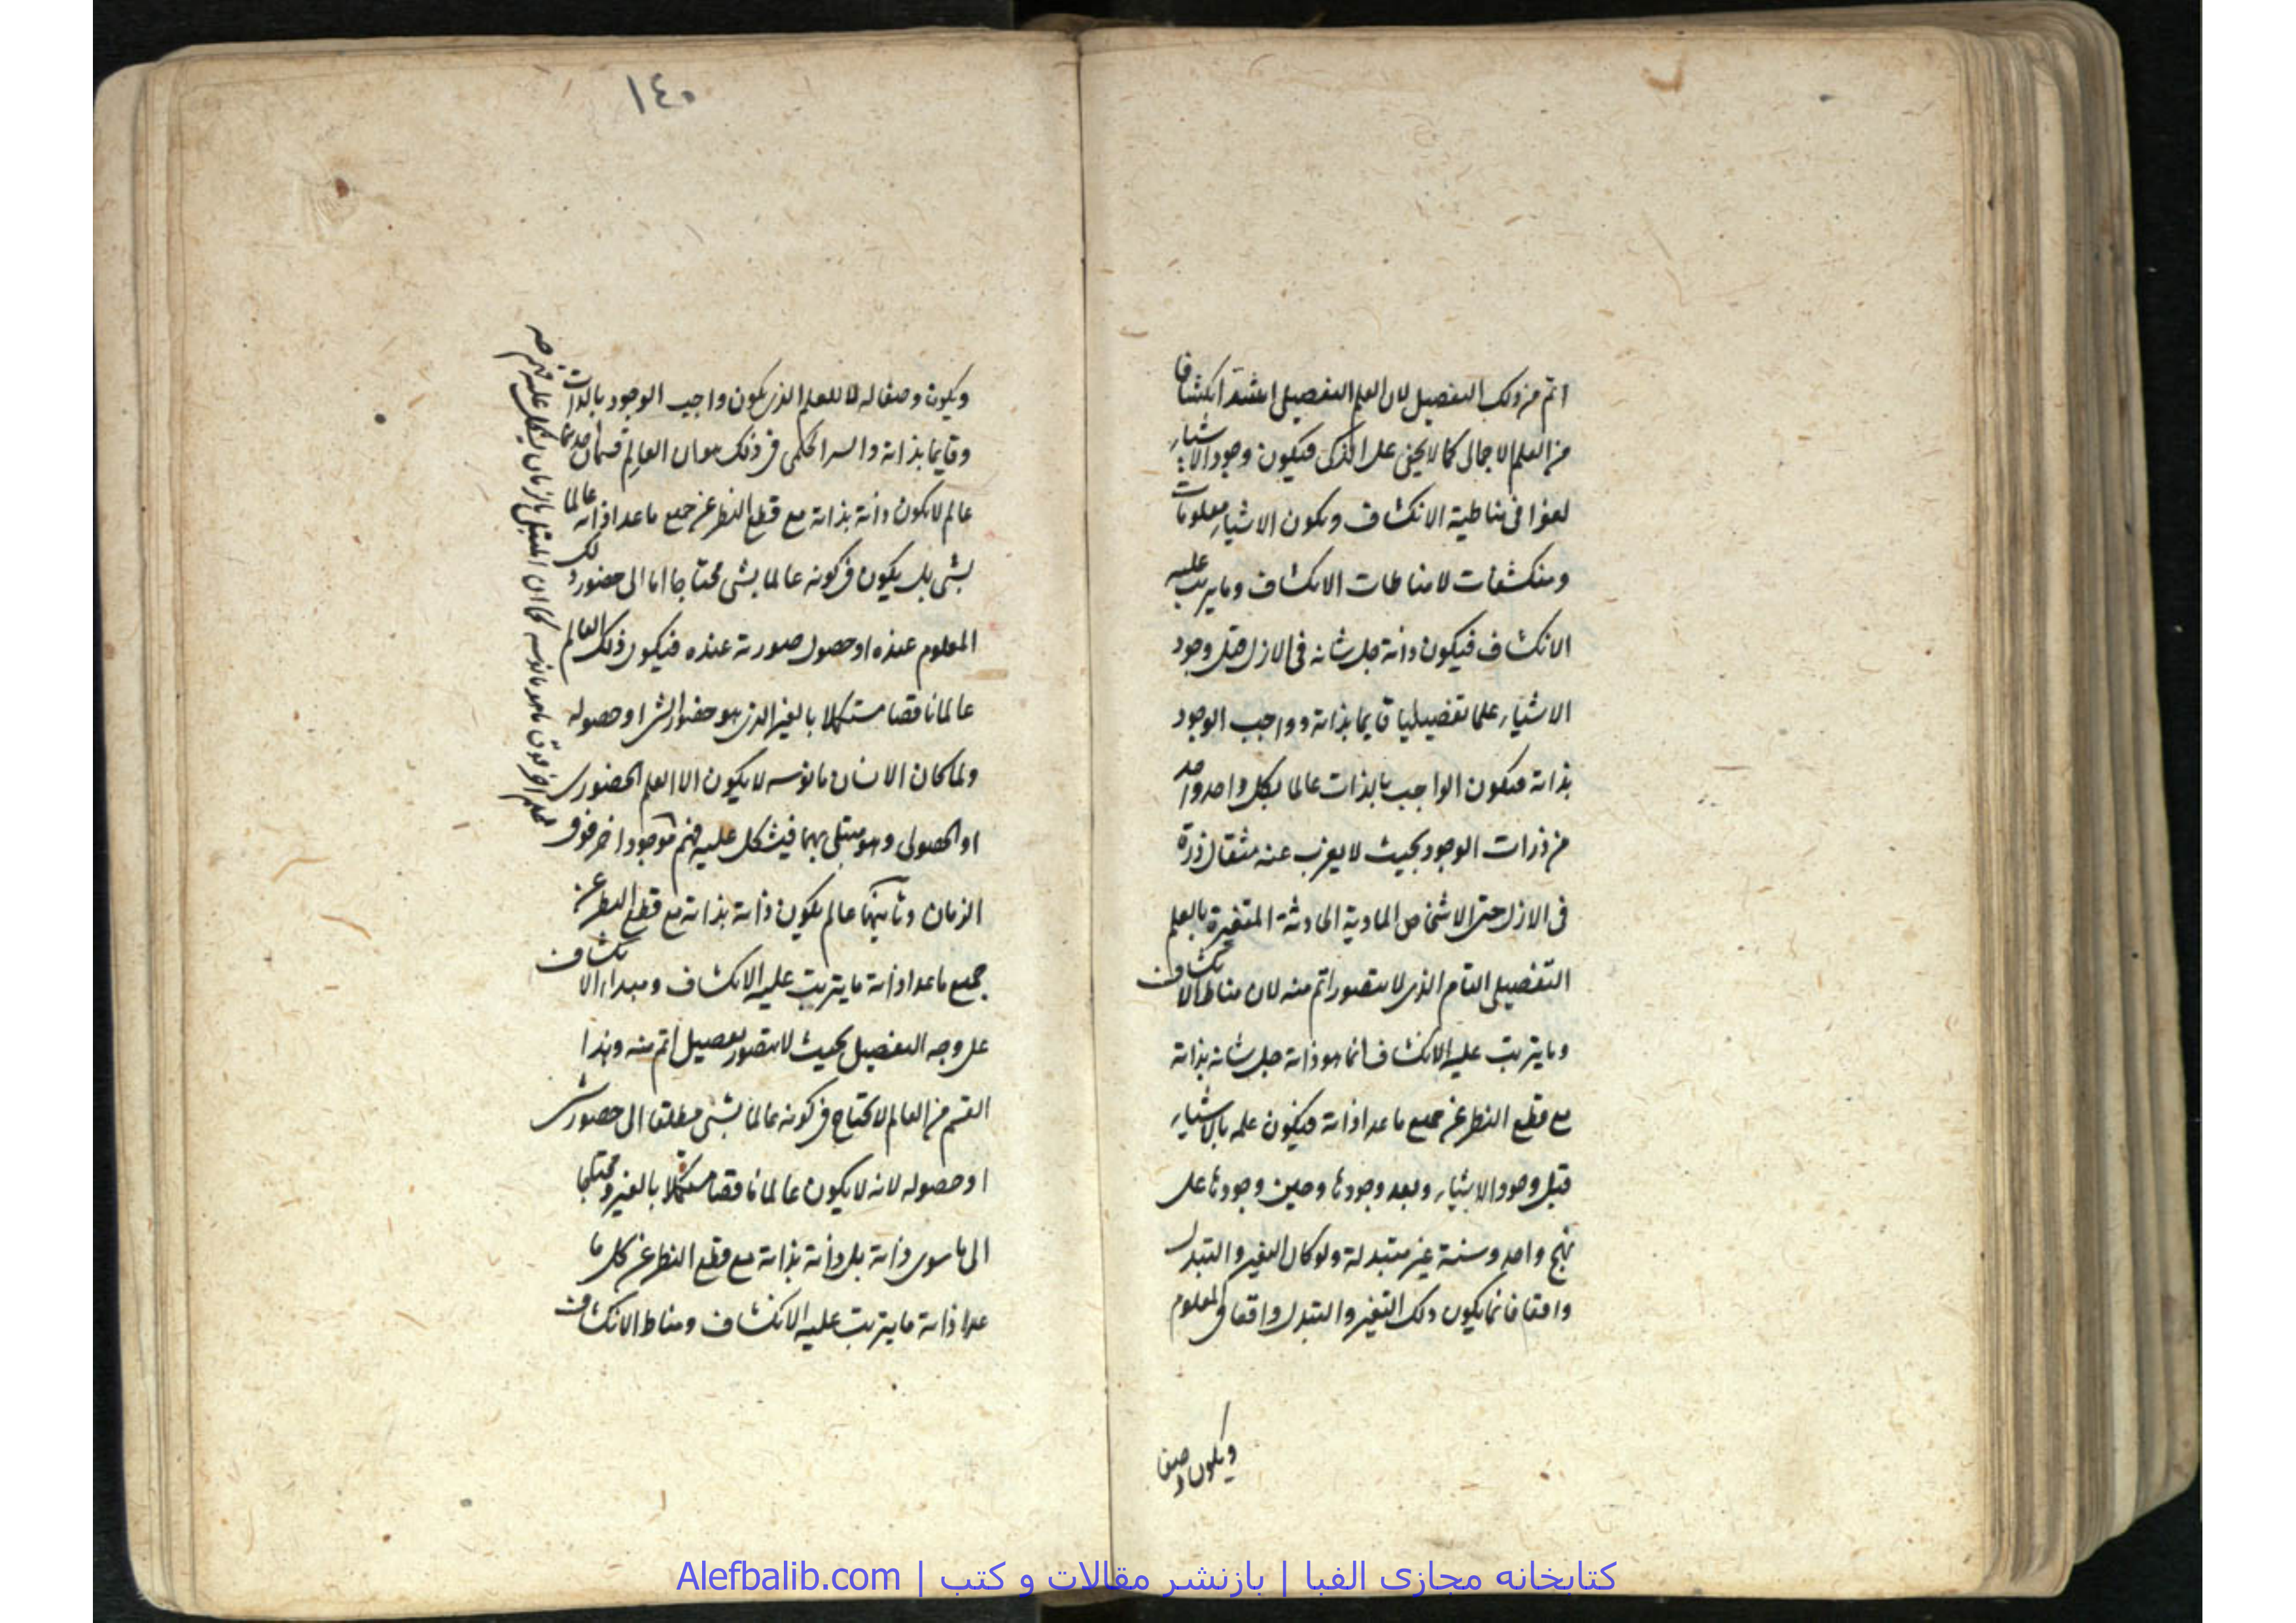 اتم من ذلك التفصيل لان العلم التفصيلى اشد انكشافا
من العلم الاجمالى كما لا يخفى على الذكى فيكون وجود الاشياء
لغوا فى مناطية الانكشاف ويكون الاشياء معلومات
ومنكشفات لا مناطات الانكشاف وما يترتب عليه
الانكشاف فيكون ذاته جل شانه فى الازل قبل وجود
الاشياء علما تفصيليا قايما بذاته وواجب الوجود
بذاته فيكون الواجب بالذات عالما بكل واحد واحد
من ذرات الوجود بحيث لا يعزب عنه مثقال ذرة
فى الازل حتى الاشخاص المادية الحادثة المتغيرة بالعلم
التفصيلى التام الذى لا يتصور اتم منه لان مناط الانكشاف
وما يترتب عليه الانكشاف انما هو ذاته جل شانه بذاته
مع قطع النظر عن جميع ما عدا ذاته فيكون علمه بالاشياء
قبل وجود الاشياء وبعد وجودها وحين وجودها على
نهج واحد وسنة غير متبدلة ولو كان التغير والتبدل
واقعا فانما يكون ذلك التغير والتبدل واقعا فى المعلوم
ويكون وصفا
١٤٠
ويكون وصفا له لا للعلم الذى يكون واجب الوجود بالذات
وقايما بذاته والسر الحكمى فى ذلك هو ان العالم قسمان احدهما
عالم لا يكون ذاته بذاته مع قطع النظر عن جميع ما عدا ذاته عالما
بشى بل يكون فى كونه عالما بشى محتاجا اما الى حضور ذلك
المعلوم عنده او حصول صورته عنده فيكون ذلك العالم
عالما ناقصا مستكملا بالغير الذى هو حضور الشى او حصوله
ولما كان الانسان مانوسه لا يكون الا العلم الحضورى
او الحصولى وهو مبتلى بهما فيشكل عليه فهم موجود اخر فوق
الزمان وثانيهما عالم يكون ذاته بذاته مع قطع النظر عن
جميع ما عدا ذاته ما يترتب عليه الانكشاف ومبداء الانكشاف
على وجه التفصيل بحيث لا يتصور تفصيل اتم منه وهذا
القسم من العالم لا يحتاج فى كونه عالما بشى مطلقا الى حضور شى
او حصوله لانه لا يكون عالما ناقصا مستكملا بالغير ومحتاجا
الى ما سوى ذاته بل ذاته بذاته مع قطع النظر عن كل ما
عدا ذاته ما يترتب عليه الانكشاف ومناط الانكشاف
علم اخر فوق ما هو مانوسه كما ان المبتلى بالزمان يشكل عليه فهم
کتابخانه مجازی الفبا | بازنشر مقالات و کتب | Alefbalib.com